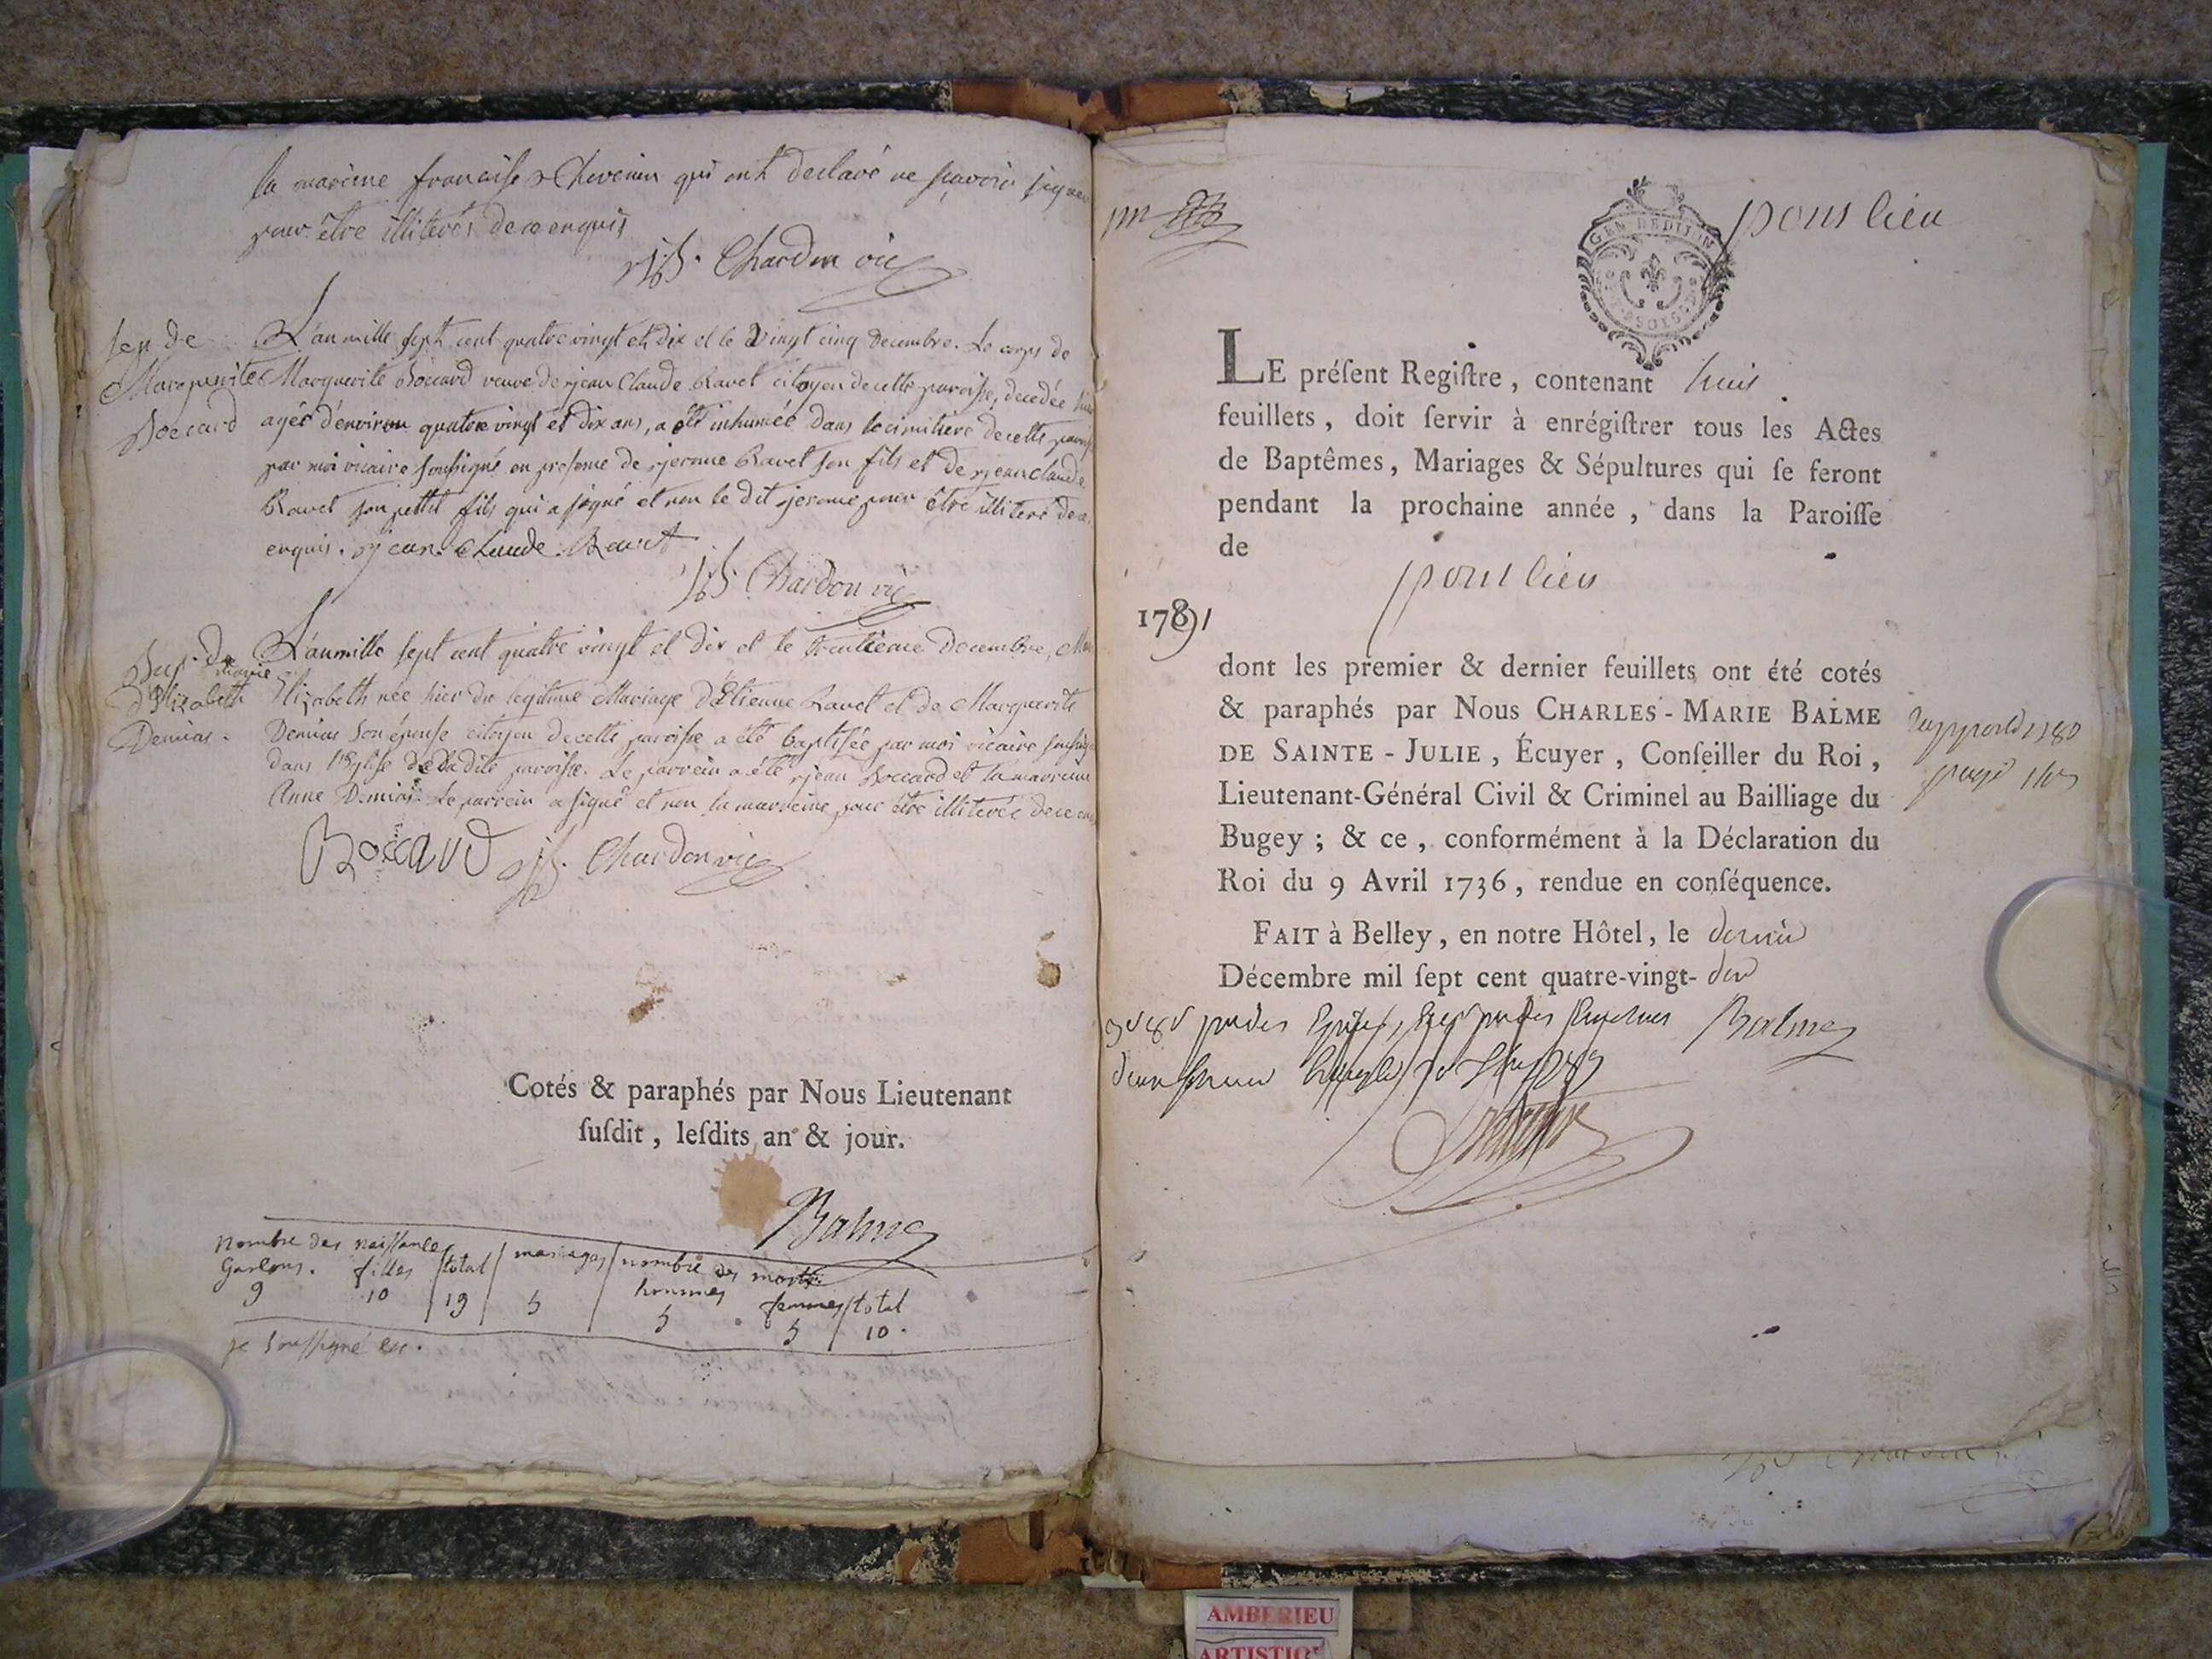 la mareine francoise Chevenin qui ont declaré ne sçavoir signer
pour être illiterés de ce enquis
Chardon vic
sep de
Marguerite
Boccard
L'an mille sept cent quatre vingt et dix et le vingt cinq decembre. Le corps de
Marguerite Boccard veuve de jean Claude Ravet citoyen de cette paroisse, decedée hier
agée d'environ quatre vingt et dix ans, a été inhumée dans le cimitiere de cette paroisse
par moi vicaire soussigné en presence de jerome Ravet son fils et de jean claude
Ravet son pettit fils qui a signé et non le dit jerome pour être illiteré de ce
enquis. jean Claude Ravet
Chardon vic
Bap. de
marie
Elizabeth
Demias.
L'an mille sept cent quatre vingt et dix et le trentieme decembre, Marie
Elizabeth née hier du legitime Mariage d'Etienne Ravet et de Marguerite
Demias son épouse citoyen de cette paroisse a été baptisée par moi vicaire soussigné
dans l'Eglise de la dite paroisse. Le parrein a été jean Boccard et la marreine
Anne Demias. Le parrein a signé et non la marreine pour être illiterée de ce enquis
Boccard Chardon vic
Cotés & paraphés par Nous Lieutenant
ſuſdit, leſdits an & jour.
Balme
nombre des naissance total mariages nombre des morts
Garsons. filles hommes femmes total
9 10 19 5 5 5 10.
je soussigné etc.
pm
pous lieu
GEN. DE DIJON
LE préſent Regiſtre, contenant huit
feuillets, doit ſervir à enrégiſtrer tous les Actes
de Baptêmes, Mariages & Sépultures qui ſe feront
pendant la prochaine année, dans la Paroiſſe
de
pous lieu
1791
dont les premier & dernier feuillets ont été cotés
& paraphés par Nous CHARLES-MARIE BALME
DE SAINTE-JULIE, Écuyer, Conſeiller du Roi,
Lieutenant-Général Civil & Criminel au Bailliage du
Bugey; & ce, conformément à la Déclaration du
Roi du 9 Avril 1736, rendue en conſéquence.
FAIT à Belley, en notre Hôtel, le dernier
Décembre mil ſept cent quatre-vingt-dix
Balme
AMBERIEU
ARTISTIQ